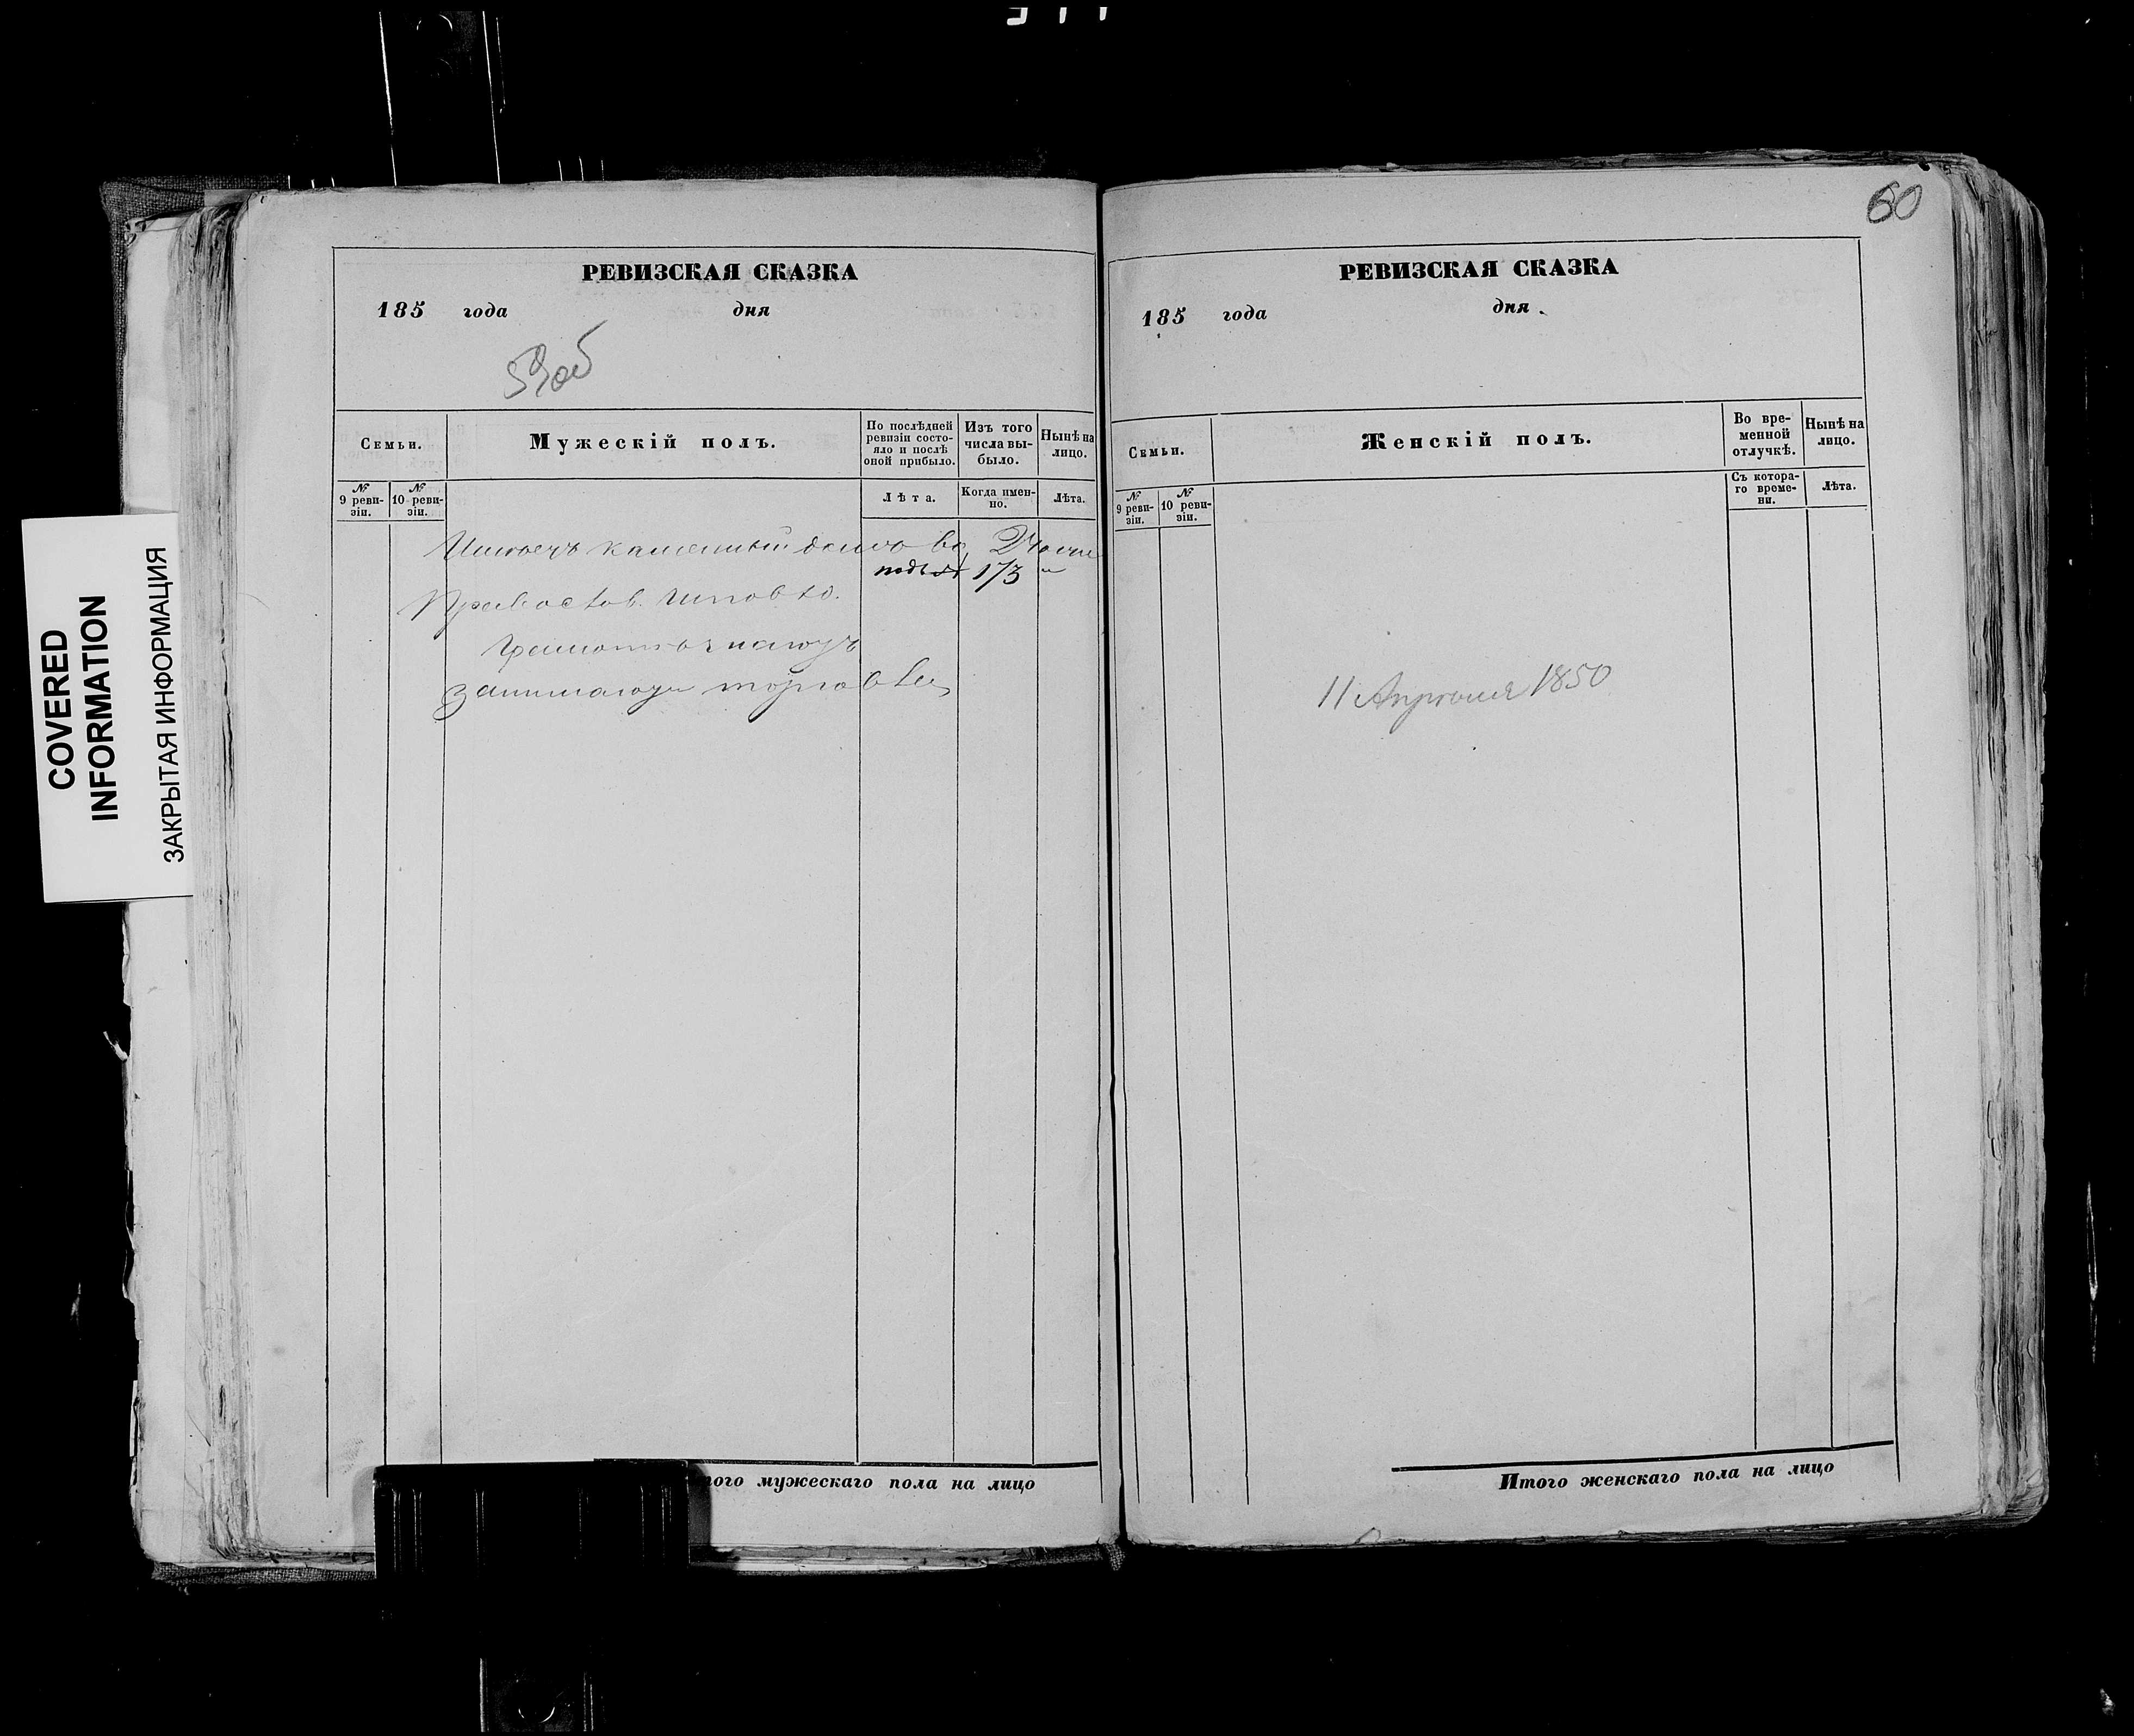 60
COVERED
INFORMATION
ЗАКРЫТАЯ ИНФОРМАЦИЯ
РЕВИЗСКАЯ СКАЗКА
185 года дня
59об
Семьи.
Мужескій полъ.
По послѣдней
ревизіи состо-
яло и послѣ
оной прибыло.
Изъ того
числа вы-
было.
Нынѣ на
лицо.
№
9 реви-
зіи.
№
10 реви-
зіи.
Лѣта.
Когда имен-
но.
Лѣта.
Имѣетъ каменный домъ во 2 части
подъ № 173
Православ. исповѣд.
грамотѣ знаютъ
занимаются торговлею
того мужескаго пола на лицо
РЕВИЗСКАЯ СКАЗКА
185 года дня
Семьи.
Женскій полъ.
Во вре-
менной
отлучкѣ.
Нынѣ на
лицо.
№
9 реви-
зіи.
№
10 реви-
зіи.
Съ котора-
го време-
ни.
Лѣта.
11 Апрѣля 1850
Итого женскаго пола на лицо